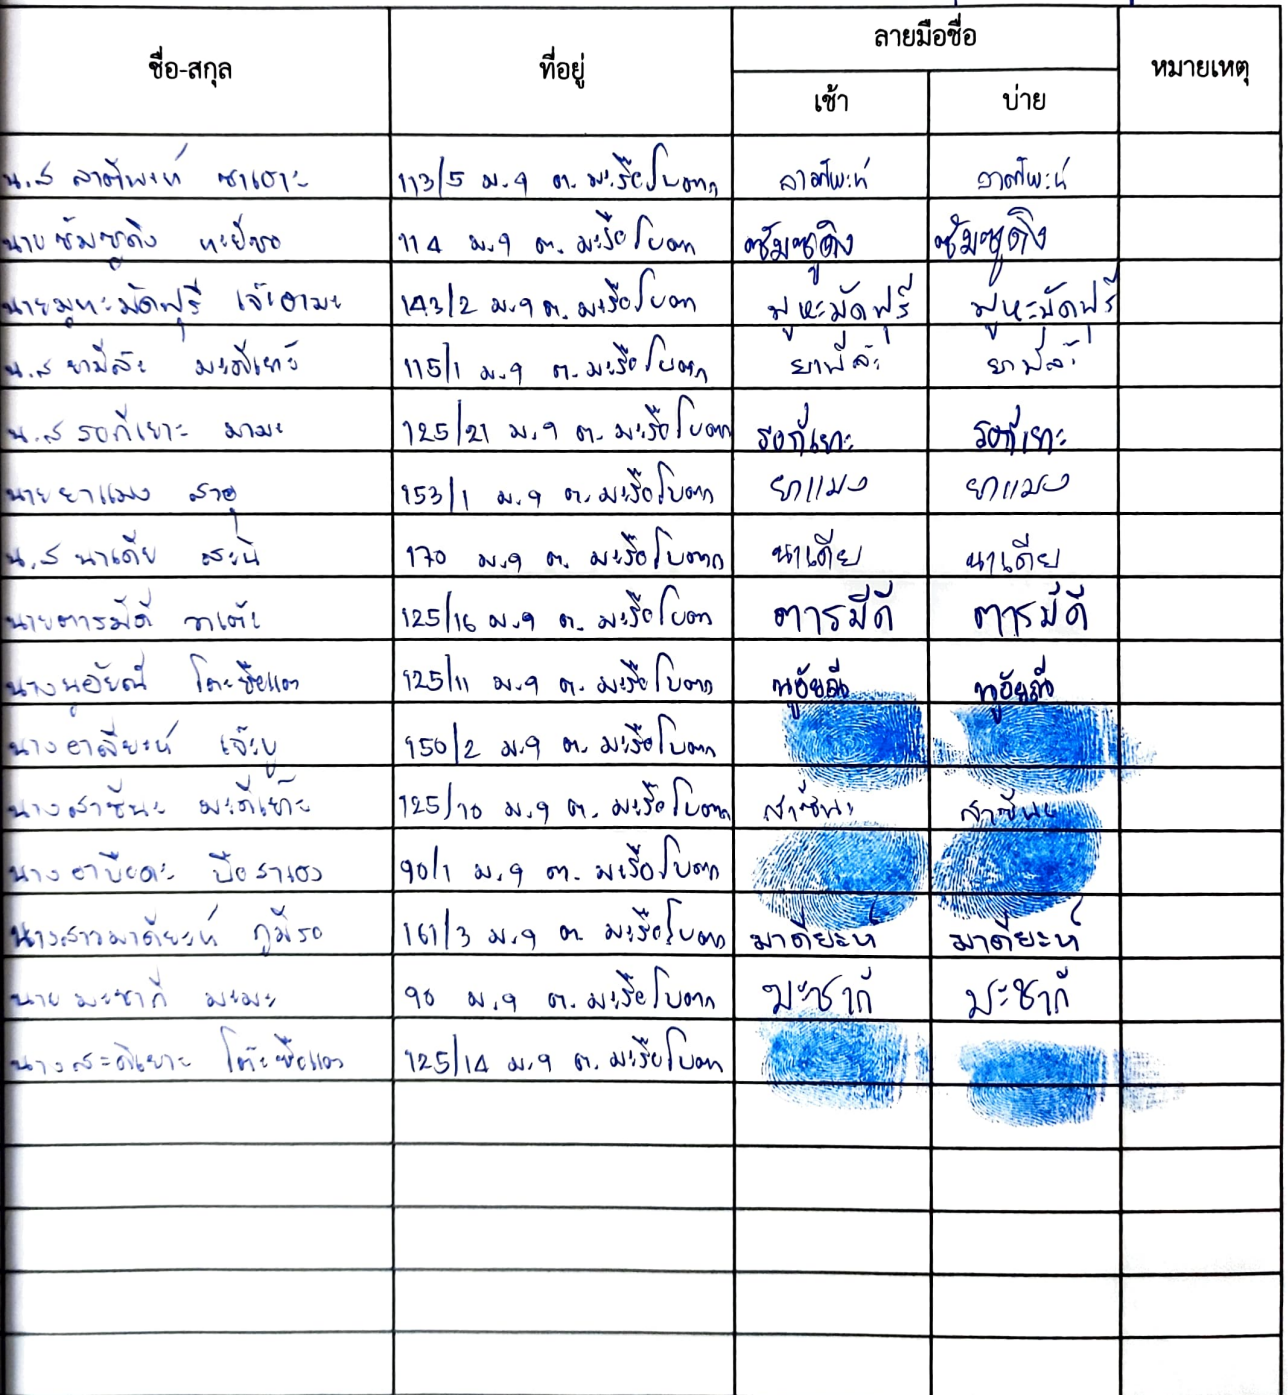 ชื่อ-สกุล ที่อยู่ ลายมือชื่อ หมายเหตุ
เช้า บ่าย
น.ส 113/5 ม.9 ต. มะรือโบตก
นายซัมซูดิง 114 ม.9 ต. มะรือโบตก ซัมซูดิง ซัมซูดิง
นายมูหะมัดฟุรี เจ๊ะอามะ 143/2 ม.9 ต. มะรือโบตก มูหะมัดฟุรี มูหะมัดฟุรี
น.ส ยามีล๊ะ 115/1 ม.9 ต. มะรือโบตก ยามีล๊ะ ยามีล๊ะ
น.ส รอกีเยาะ มามะ 125/21 ม.9 ต. มะรือโบตก รอกีเยาะ รอกีเยาะ
นายยาแมง สาอุ 153/1 ม.9 ต. มะรือโบตก ยาแมง ยาแมง
น.ส นาเดีย สะนิ 170 ม.9 ต. มะรือโบตก นาเดีย นาเดีย
นายตารมีดี 125/16 ม.9 ต. มะรือโบตก ตารมีดี ตารมีดี
นางนูอัยณี โต๊ะซือแต 125/11 ม.9 ต. มะรือโบตก นูอัยณี นูอัยณี
นางอาลียะห์ เจ๊ะบู 150/2 ม.9 ต. มะรือโบตก
นางสาซีนะ 125/10 ม.9 ต. มะรือโบตก สาซีนะ สาซีนะ
นางอาบีดะ บือราเฮง 90/1 ม.9 ต. มะรือโบตก
นางสาวมาดียะห์ ภูมีรอ 161/3 ม.9 ต. มะรือโบตก มาดียะห์ มาดียะห์
นายมะซากี มะมะ 90 ม.9 ต. มะรือโบตก มะซากี มะซากี
นางสะดีเยาะ โต๊ะซือแต 125/14 ม.9 ต. มะรือโบตก